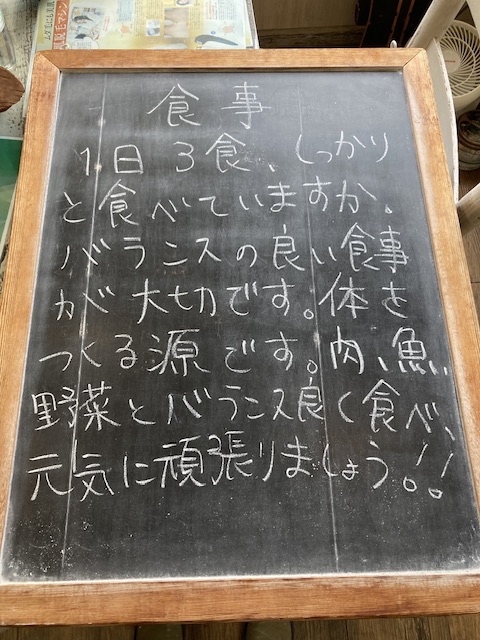 ムダ毛にも乳
乳脱毛マシン
食事
1日3食、しっかり
と食べていますか。
バランスの良い食事
が大切です。体を
つくる源です。肉、魚、
野菜とバランス良く食べ、
元気に頑張りましょう!!